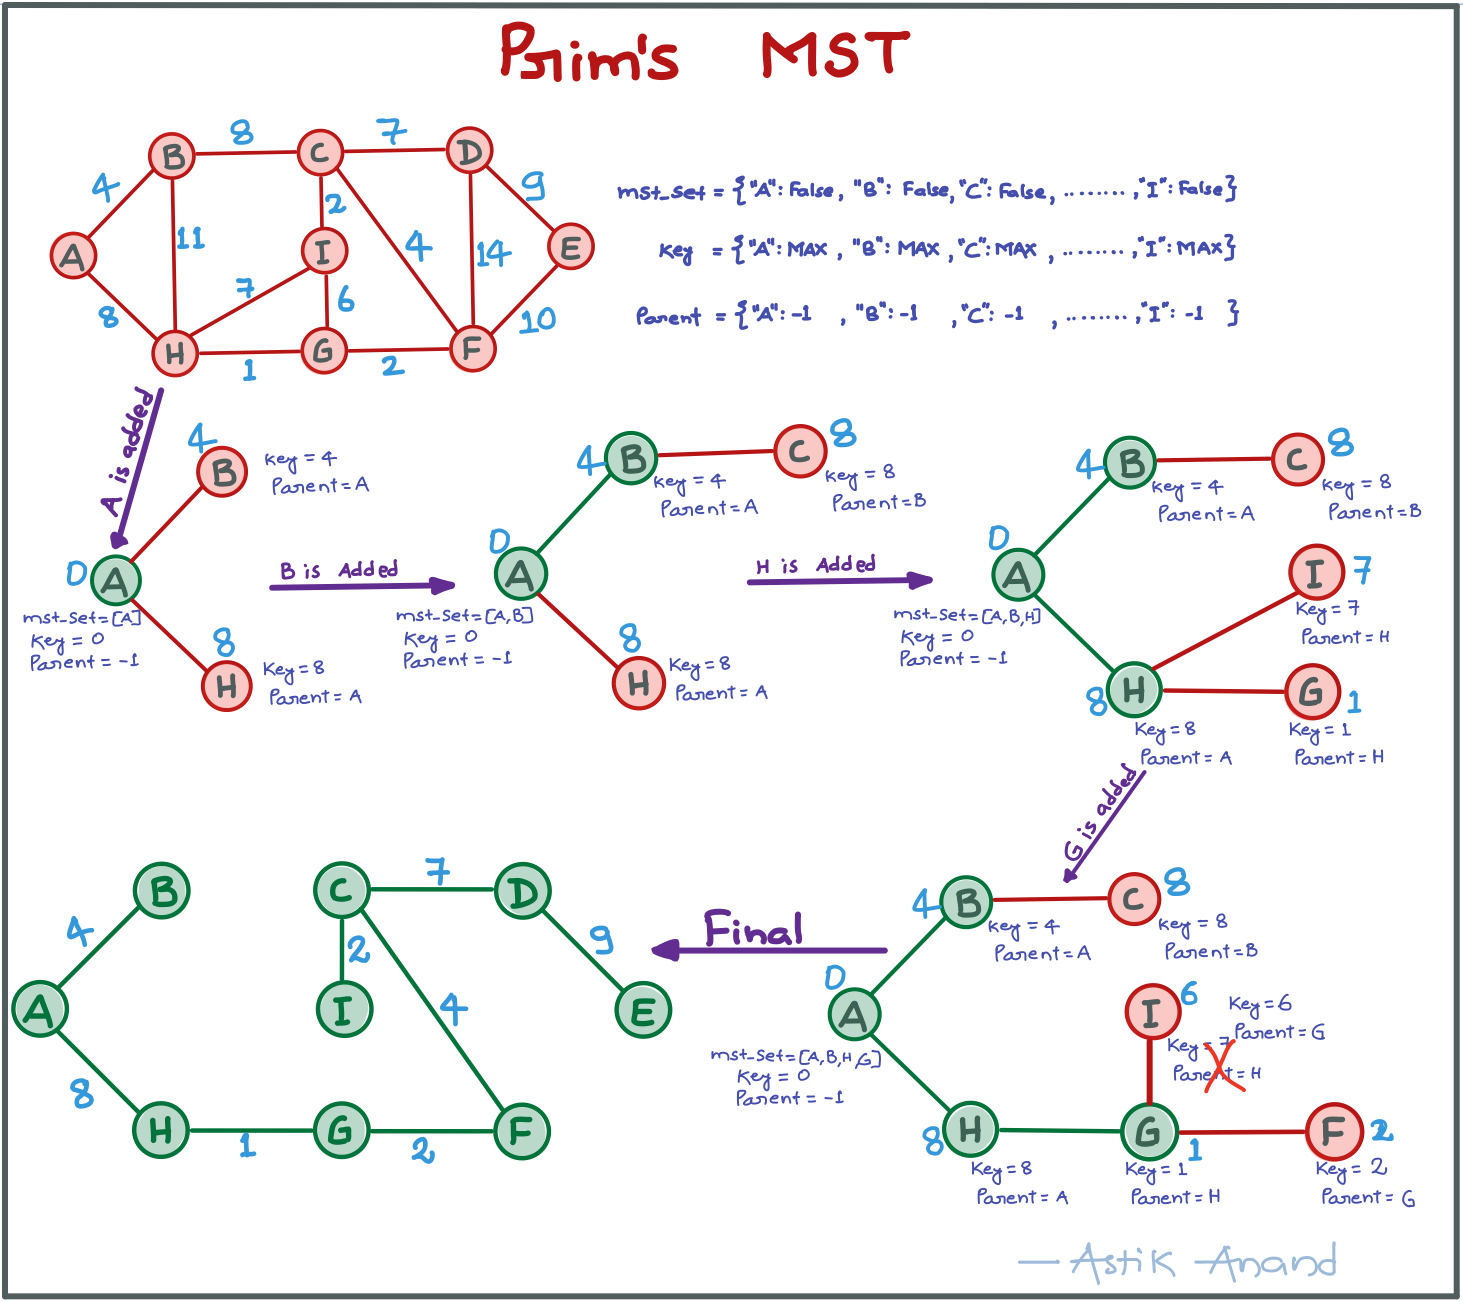 Prim's MST
8
7
B
C
D
4
2
9
11
4
14
A
I
E
7
6
8
10
H
G
F
1
2
mst_set = {"A": False, "B": False, "C": False, ........, "I": False}
Key = {"A": MAX, "B": MAX, "C": MAX, ........, "I": MAX}
Parent = {"A": -1, "B": -1, "C": -1, ........, "I": -1}
A is added
4
B
Key = 4
Parent = A
0
A
mst_Set=[A]
Key = 0
Parent = -1
8
H
Key = 8
Parent = A
B is Added
4
B
Key = 4
Parent = A
8
C
Key = 8
Parent = B
0
A
mst_Set=[A,B]
Key = 0
Parent = -1
8
H
Key = 8
Parent = A
H is Added
4
B
Key = 4
Parent = A
8
C
Key = 8
Parent = B
0
A
mst_Set=[A,B,H]
Key = 0
Parent = -1
I
7
Key = 7
Parent = H
8
H
Key = 8
Parent = A
G
1
Key = 1
Parent = H
G is added
4
B
Key = 4
Parent = A
8
C
Key = 8
Parent = B
0
A
mst_Set=[A,B,H,G]
Key = 0
Parent = -1
I
6
Key = 6
Parent = G
Key = 7
Parent = H
8
H
Key = 8
Parent = A
G
1
Key = 1
Parent = H
F
2
Key = 2
Parent = G
Final
B
C
7
D
4
2
9
A
I
4
E
8
H
1
G
2
F
— Astik Anand